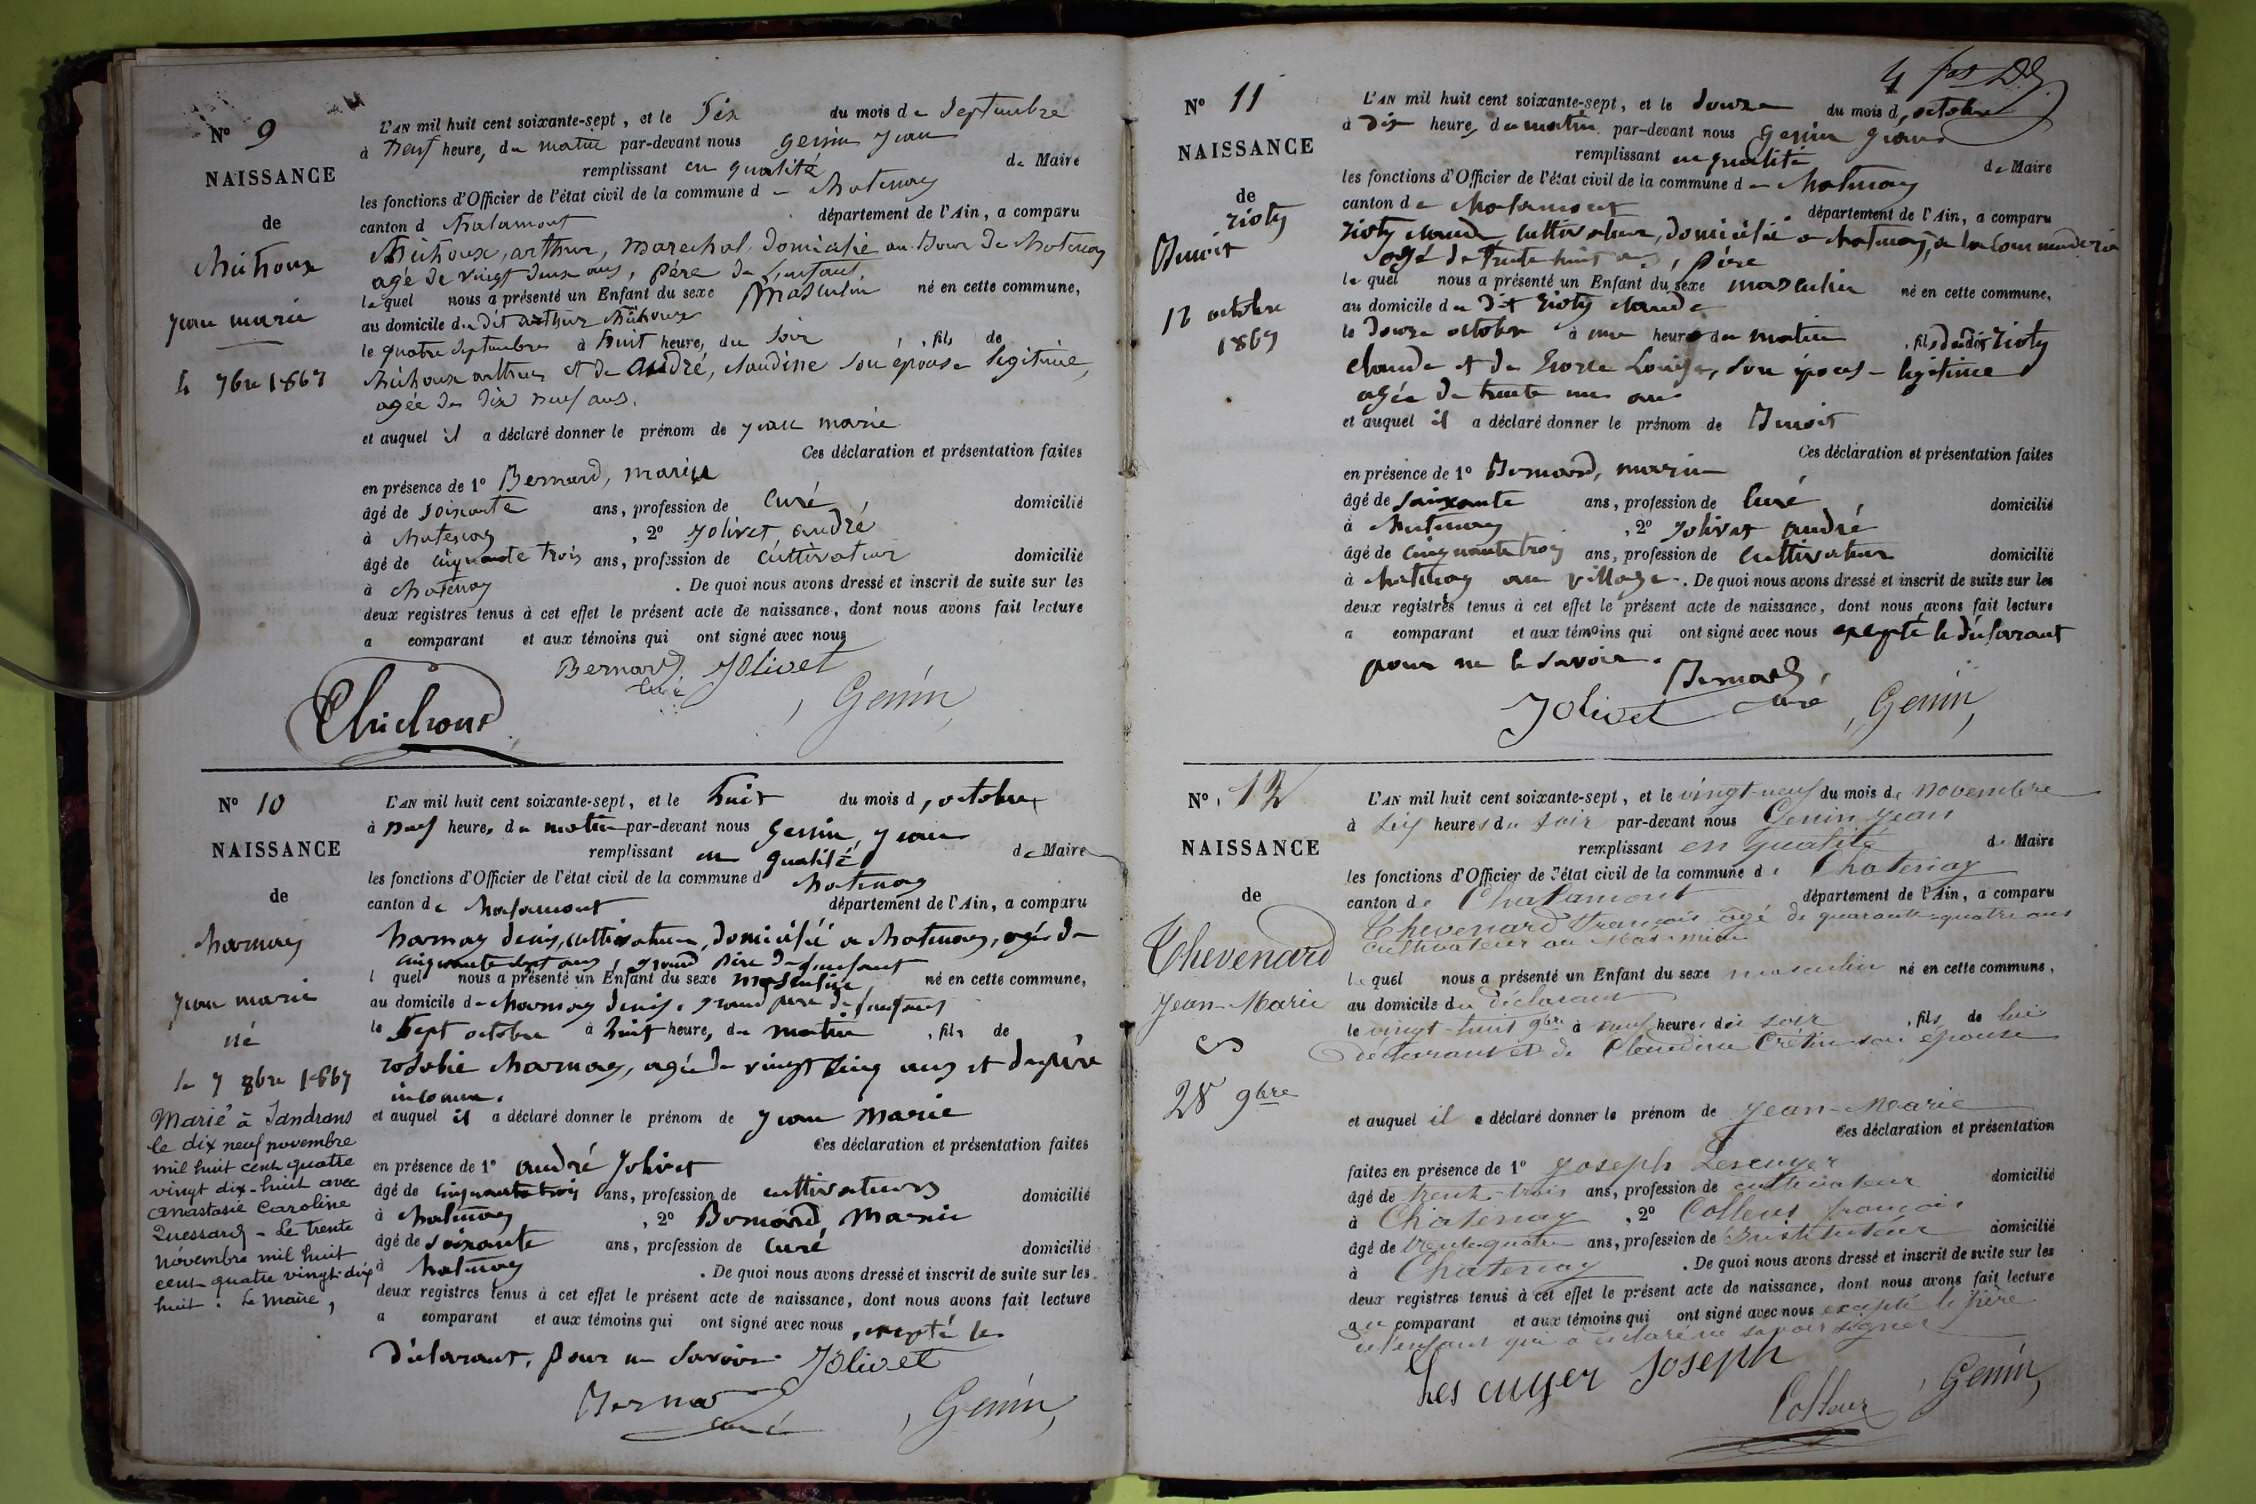 N° 9
NAISSANCE
de
Chichoux
jean marie
4 7bre 1867
L'AN mil huit cent soixante-sept, et le Six du mois de Septembre
à neuf heure, du matin par-devant nous genin jean
remplissant en qualité de Maire
les fonctions d'Officier de l'état civil de la commune de chatenay
canton d chalamont département de l'Ain, a comparu
Chichoux, arthur, marechal, domicilié au Bour de chatenay
agé de vingt deux ans, père de l'enfant,
lequel nous a présenté un Enfant du sexe masculin né en cette commune,
au domicile du dit arthur chichoux
le quatre septembre à huit heure, du soir , fils de
chichoux arthur et de andré, claudine son épouse legitime,
agée de dix neuf ans.
et auquel il a déclaré donner le prénom de jean marie
Ces déclaration et présentation faites
en présence de 1° Bernard, marie
âgé de soixante ans, profession de curé, domicilié
à chatenay , 2° Jolivet andré
âgé de cinquante trois ans, profession de cultivateur domicilié
à chatenay . De quoi nous avons dressé et inscrit de suite sur les
deux registres tenus à cet effet le présent acte de naissance, dont nous avons fait lecture
a comparant et aux témoins qui ont signé avec nous
Bernard Jolivet
curé
Chichoux Genin
N° 10
NAISSANCE
de
charnay
jean marie
né
le 7 8bre 1867
Marié à Sandrans
le dix neuf novembre
mil huit cent quatre
vingt dix-huit avec
Anastasie Caroline
Quessard - Le trente
novembre mil huit
cent quatre vingt-dix
huit. Le Maire,
L'AN mil huit cent soixante-sept, et le huit du mois d'octobre
à neuf heures du matin par-devant nous genin, jean
remplissant en qualité de Maire
les fonctions d'Officier de l'état civil de la commune d chatenay
canton de chalamont département de l'Ain, a comparu
charnay denis, cultivateur, domicilié a chatenay, agé de
cinquante sept ans, grand père de l'enfant
l quel nous a présenté un Enfant du sexe masculin né en cette commune,
au domicile de charnay denis, grand père de l'enfant
le sept octobre à huit heure, du matin , fils de
rosalie charnay, agée de vingt cinq ans et de père
inconnu.
et auquel il a déclaré donner le prénom de jean marie
Ces déclaration et présentation faites
en présence de 1° andré Jolivet
âgé de cinquante trois ans, profession de cultivateur domicilié
à chatenay , 2° Bernard, marie
âgé de soixante ans, profession de curé domicilié
à chatenay . De quoi nous avons dressé et inscrit de suite sur les
deux registres tenus à cet effet le présent acte de naissance, dont nous avons fait lecture
a comparant et aux témoins qui ont signé avec nous, excepté le
déclarant, pour ne savoir. Jolivet
Bernard
curé Genin
4
N° 11
NAISSANCE
de
rioty
Benoit
12 octobre
1867
L'AN mil huit cent soixante-sept, et le douze du mois d'octobre
à dix heure, du matin par-devant nous genin jean
remplissant en qualité de Maire
les fonctions d'Officier de l'état civil de la commune de chatenay
canton de chalamont département de l'Ain, a comparu
rioty claude, cultivateur, domicilié a chatenay, a la commanderie
agé de trente huit ans, père
lequel nous a présenté un Enfant du sexe masculin né en cette commune,
au domicile du dit rioty claude
le douze octobre à une heure du matin , fils du dit rioty
claude et de Louise, son épouse légitime
agée de trente un ans
et auquel il a déclaré donner le prénom de Benoit
Ces déclaration et présentation faites
en présence de 1° Bernard, marie
âgé de soixante ans, profession de curé, domicilié
à chatenay , 2° Jolivet andré
âgé de cinquante trois ans, profession de cultivateur domicilié
à chatenay au village. De quoi nous avons dressé et inscrit de suite sur les
deux registres tenus à cet effet le présent acte de naissance, dont nous avons fait lecture
a comparant et aux témoins qui ont signé avec nous excepté le déclarant
pour ne le savoir. Bernard,
Jolivet curé Genin
N° 12
NAISSANCE
de
Thevenard
Jean-Marie
28 9bre
L'AN mil huit cent soixante-sept, et le vingt-neuf du mois de novembre
à six heures du soir par-devant nous Genin Jean
remplissant en qualité de Maire
les fonctions d'Officier de l'état civil de la commune de Chatenay
canton de Chalamont département de l'Ain, a comparu
Thevenard François âgé de quarante-quatre ans
cultivateur au
lequel nous a présenté un Enfant du sexe masculin né en cette commune,
au domicile du déclarant
le vingt-huit 9bre à neuf heures du soir , fils de lui
déclarant et de Claudine Crétin son épouse
et auquel il a déclaré donner le prénom de Jean-Marie
Ces déclaration et présentation
faites en présence de 1° Joseph Lescuyer
âgé de trente-trois ans, profession de cultivateur domicilié
à Chatenay , 2° Colleur françois
âgé de trente-quatre ans, profession de Instituteur domicilié
à Chatenay . De quoi nous avons dressé et inscrit de suite sur les
deux registres tenus à cet effet le présent acte de naissance, dont nous avons fait lecture
au comparant et aux témoins qui ont signé avec nous excepté le père
de l'enfant qui a déclaré ne savoir signer
Les cuyer Joseph
Colleur Genin